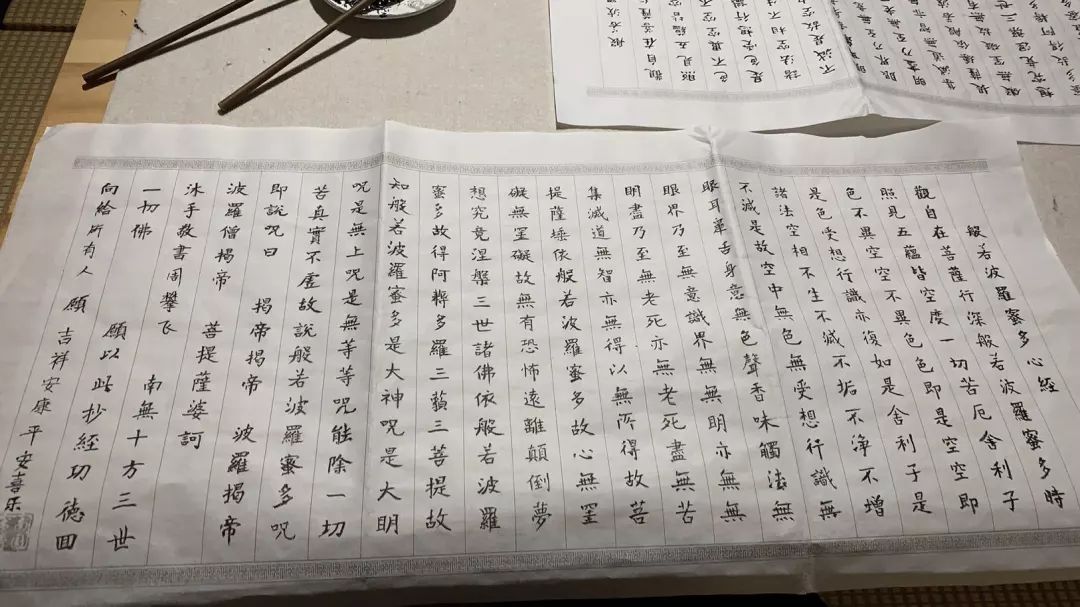 般若波羅蜜多心經
觀自在菩薩行深般若波羅蜜多時
照見五蘊皆空度一切苦厄舍利子
色不異空空不異色色即是空空即
是色受想行識亦復如是舍利子是
諸法空相不生不滅不垢不淨不增
不滅是故空中無色無受想行識無
眼耳鼻舌身意無色聲香味觸法無
眼界乃至無意識界無無明亦無無
明盡乃至無老死亦無老死盡無苦
集滅道無智亦無得以無所得故菩
提薩埵依般若波羅蜜多故心無罣
礙無罣礙故無有恐怖遠離顛倒夢
想究竟涅槃三世諸佛依般若波羅
蜜多故得阿耨多羅三藐三菩提故
知般若波羅蜜多是大神呪是大明
呪是無上呪是無等等呪能除一切
苦真實不虛故說般若波羅蜜多呪
即說呪曰 揭帝揭帝 波羅揭帝
波羅僧揭帝 菩提薩婆訶
沐手敬書周攀飞 南無十方三世
一切佛 願以此抄經功德回
向給所有人 願吉祥安康平安喜乐